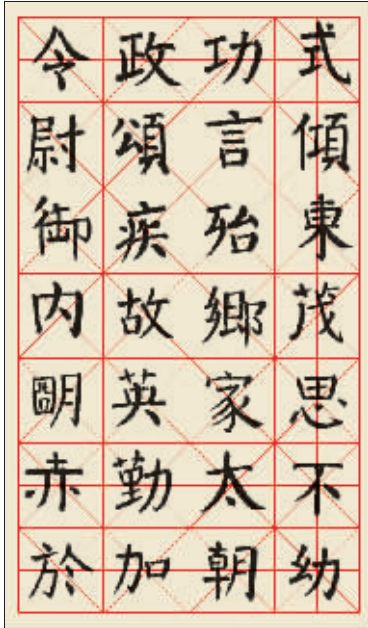 式傾東茂思不幼
功言殆鄉家太朝
政頌疾故英勤加
令尉御内明赤於